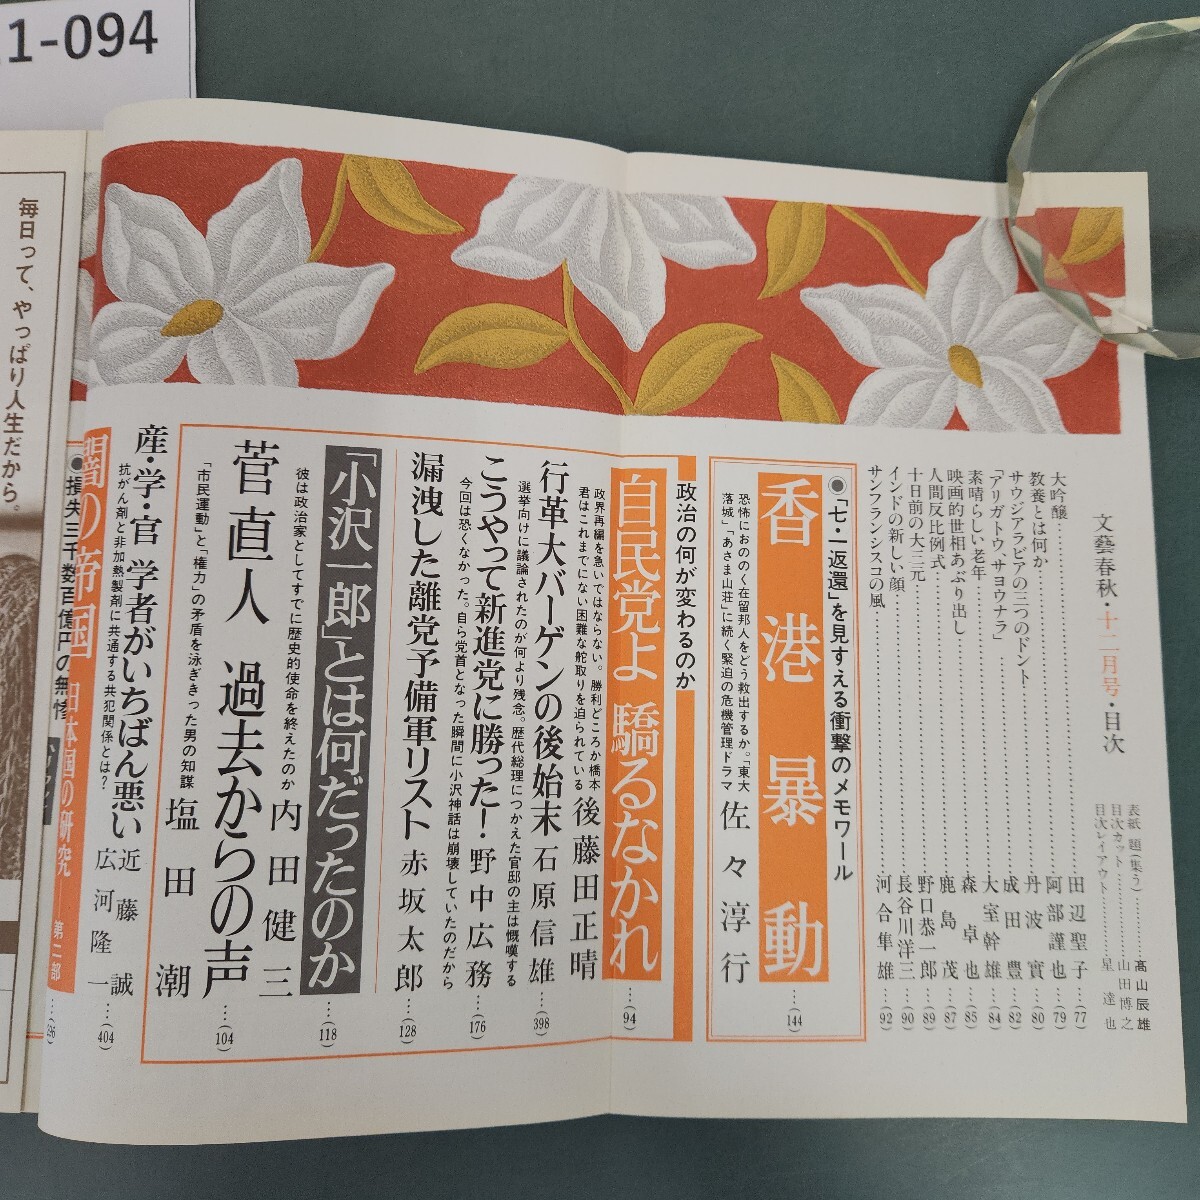 1-094
文藝春秋・十二月号・目次
表紙 題(集う)……髙山辰雄
目次カット……山田博之
目次レイアウト……星 達也
大吟醸……田辺聖子…(77)
教養とは何か……阿部謹也…(79)
サウジアラビアの三つのドント……丹波 實…(80)
「アリガトウ、サヨウナラ」……成田 豊…(82)
素晴らしい老年……大室幹雄…(84)
映画的世相あぶり出し……森 卓也…(85)
人間反比例式……鹿島 茂…(87)
十日前の大三元……野口恭一郎…(89)
インドの新しい顔……長谷川洋三…(90)
サンフランシスコの風……河合隼雄…(92)
●「七・一返還」を見すえる衝撃のメモワール
香港暴動
恐怖におののく在留邦人をどう救出するか。「東大
落城」「あさま山荘」に続く緊迫の危機管理ドラマ
佐々淳行…(144)
政治の何が変わるのか
自民党よ 驕るなかれ
政界再編を急いではならない。勝利どころか橋本
君はこれまでにない困難な舵取りを迫られている
後藤田正晴…(94)
行革大バーゲンの後始末
選挙向けに議論されたのが何より残念。歴代総理につかえた官邸の主は慨嘆する
石原信雄…(398)
こうやって新進党に勝った!
今回は恐くなかった。自ら党首となった瞬間に小沢神話は崩壊していたのだから
野中広務…(176)
漏洩した離党予備軍リスト 赤坂太郎…(128)
「小沢一郎」とは何だったのか
彼は政治家としてすでに歴史的使命を終えたのか
内田健三…(118)
菅直人 過去からの声
「市民運動」と「権力」の矛盾を泳ぎきった男の知謀
塩田潮…(104)
産・学・官 学者がいちばん悪い
抗がん剤と非加熱製剤に共通する共犯関係とは?
近藤 誠
広河隆一
…(404)
闇の帝国 日本国の研究——第二部
●損失三千数百億円の無惨
毎日って、やっぱり人生だから。